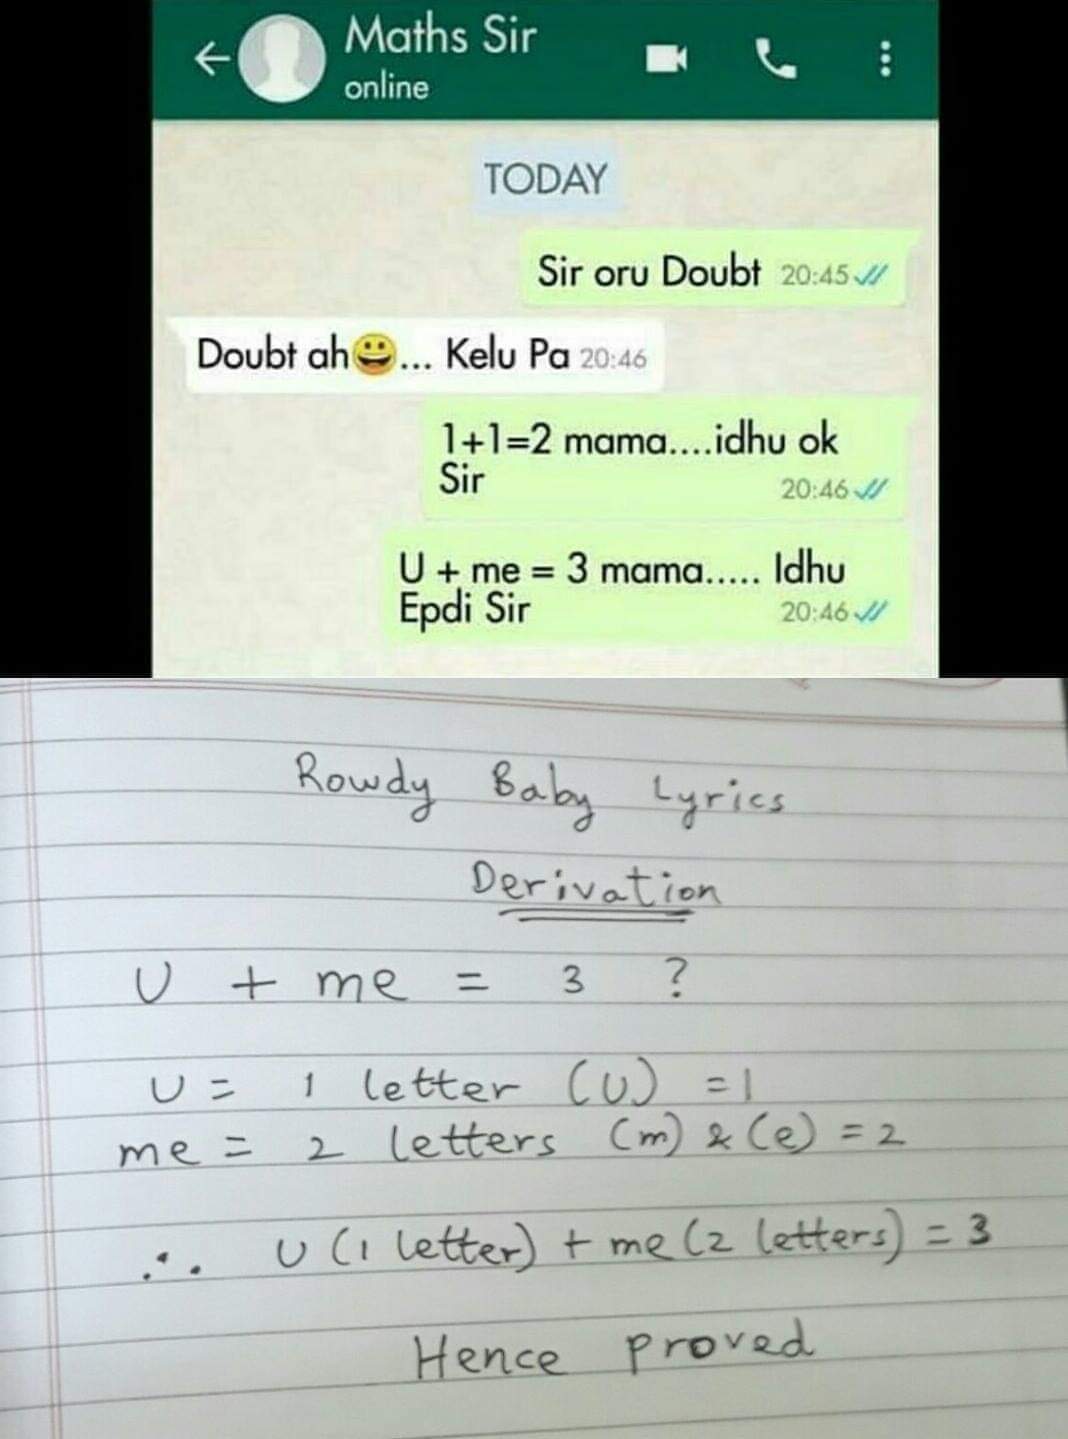 Maths Sir
online
TODAY
Sir oru Doubt 20:45
Doubt ah😀... Kelu Pa 20:46
1+1=2 mama....idhu ok
Sir 20:46
U + me = 3 mama..... Idhu
Epdi Sir 20:46
Rowdy Baby Lyrics
Derivation
U + me = 3 ?
U = 1 letter (U) = 1
me = 2 letters (m) & (e) = 2
∴ U (1 letter) + me (2 letters) = 3
Hence proved